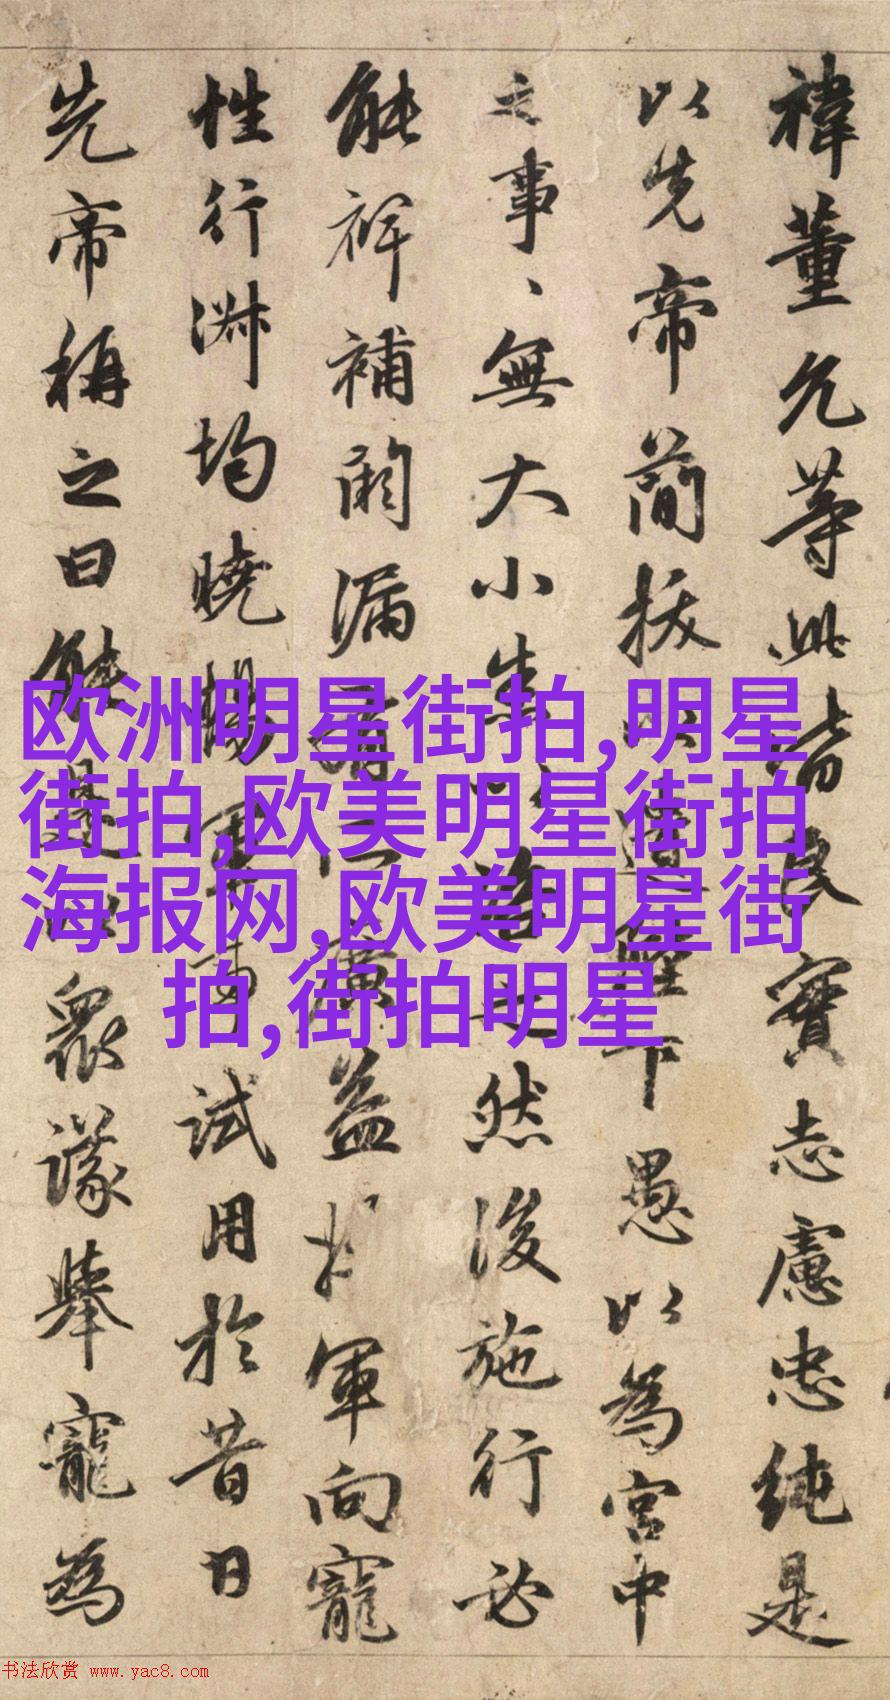 禕董允等此皆良實志慮忠純是
以先帝簡拔以遺陛下愚以為宮中
之事、無大小悉以咨之然後施行必
能裨補闕漏有所廣益將軍向寵
性行淑均曉暢軍事試用於昔日
先帝稱之曰能是以眾議舉寵為
欧洲明星街拍,明星
街拍,欧美明星街拍
海报网,欧美明星街
拍,街拍明星
书法欣赏 www.yac8.com